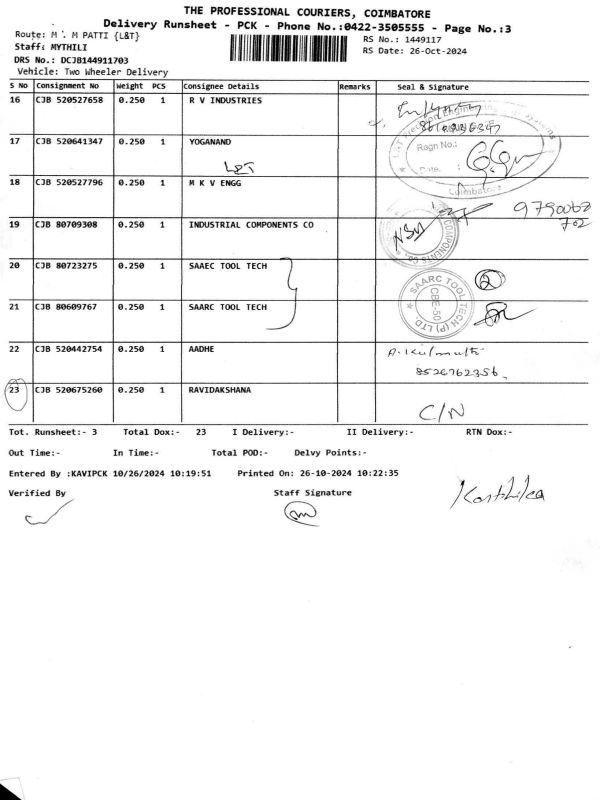 THE PROFESSIONAL COURIERS, COIMBATORE
Delivery Runsheet - PCK - Phone No.:0422-3505555 - Page No.:3
Route: M . M PATTI {L&T}
RS No.: 1449117
Staff: MYTHILI
RS Date: 26-Oct-2024
DRS No.: DCJB144911703
Vehicle: Two Wheeler Delivery
S No Consignment No Weight PCS Consignee Details Remarks Seal & Signature
16 CJB 520527658 0.250 1 R V INDUSTRIES
17 CJB 520641347 0.250 1 YOGANAND
L&T
Regn No.:
Date.
Coimbatore
18 CJB 520527796 0.250 1 M K V ENGG
9790068
702
19 CJB 80709308 0.250 1 INDUSTRIAL COMPONENTS CO
COMPONENTS CO.
20 CJB 80723275 0.250 1 SAAEC TOOL TECH
SAARC TOOL TECH (P) LTD.
CBE-50
21 CJB 80609767 0.250 1 SAARC TOOL TECH
22 CJB 520442754 0.250 1 AADHE
8526762356
23 CJB 520675260 0.250 1 RAVIDAKSHANA
C/N
Tot. Runsheet:- 3 Total Dox:- 23 I Delivery:- II Delivery:- RTN Dox:-
Out Time:- In Time:- Total POD:- Delvy Points:-
Entered By :KAVIPCK 10/26/2024 10:19:51 Printed On: 26-10-2024 10:22:35
Verified By Staff Signature